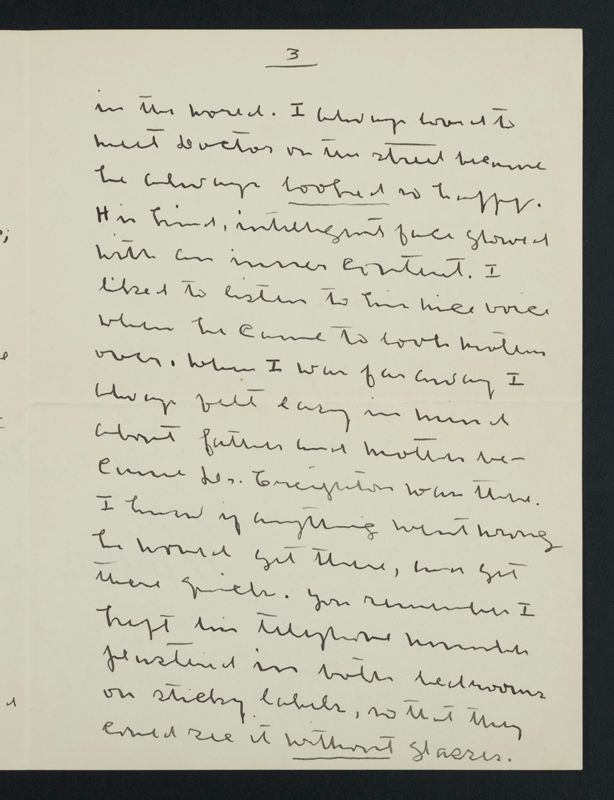 3
in the world. I always loved to
meet Doctor on the street because
he always looked so happy.
His kind, intelligent face glowed
with an inner content. I
liked to listen to his nice voice
when he came to look mother
over. When I was far away I
always felt easy in mind
about father and mother be-
cause Dr. Creighton was there.
I knew if anything went wrong
he would get there, and get
there quick. You remember I
kept his telephone number
plastered in both bedrooms
on sticky labels, so that they
could see it without glasses.